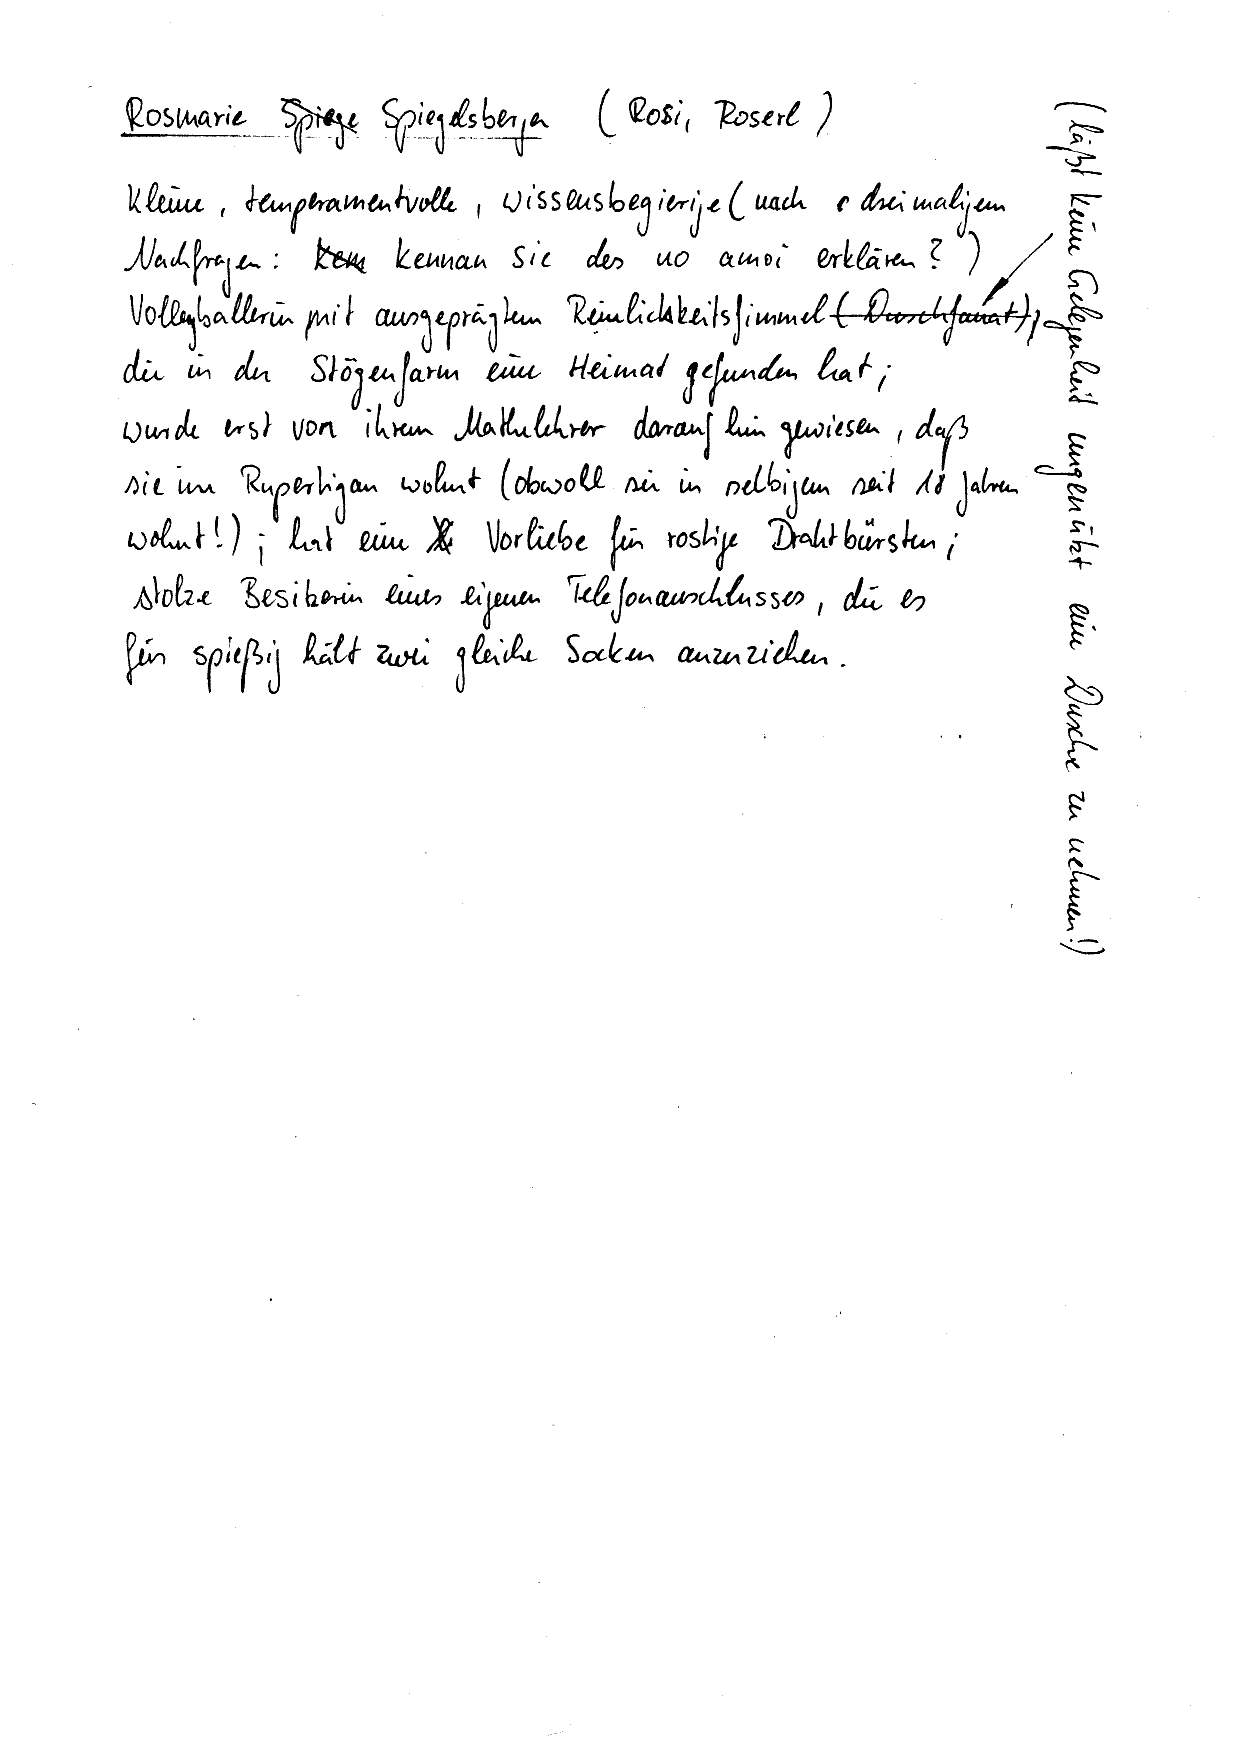 Rosmarie Spiege Spiegelsberger (Rosi, Roserl)
Kleine, temperamentvolle, wissensbegierige (nach dreimaligem
Nachfragen: Kem kennan Sie des no amoi erklären?)
Volleyballerin mit ausgeprägtem Reinlichkeitsfimmel (Duschfanat),
die in der Stögenfarm eine Heimat gefunden hat;
wurde erst von ihrem Mathelehrer darauf hin gewiesen, daß
sie im Rupertigau wohnt (obwohl sie in selbigem seit 18 Jahren
wohnt!); hat eine Vorliebe für rostige Drahtbürsten;
stolze Besitzerin eines eigenen Telefonanschlusses, die es
für spießig hält zwei gleiche Socken anzuziehen.
(läßt keine Gelegenheit ungenützt eine Dusche zu nehmen!)